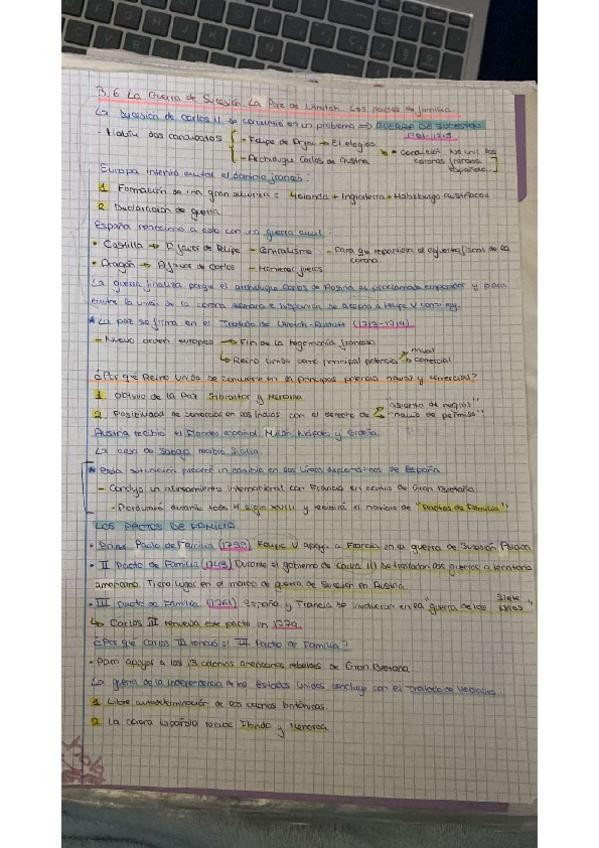 3.6 La Guerra de Sucesión. La Paz de Utrech. Los pactos de familia.
La sucesión de Carlos II se convirtió en un problema => GUERRA DE SUCESIÓN
1701-1713
- Había dos candidatos - Felipe de Anjou → El elegido
- Archiduque Carlos de Austria
Condición: No unir las coronas francesa española
Europa intentó evitar el dominio francés:
1 Formación de una gran alianza: Holanda + Inglaterra + Habsburgo austriacos
2 Declaración de guerra
España reaccionó a esto con una guerra civil:
• Castilla → A favor de Felipe - Centralismo - Para que repartieran el esfuerzo fiscal de la corona
• Aragón → A favor de Carlos - Mantener fueros
La guerra finaliza porque el archiduque Carlos de Austria es proclamado emperador y para
evitar la unión de la corona e hispánica se acepta a Felipe V como rey.
* La paz se firma en el Tratado de Utrech-Rastatt (1713-1714)
- Nuevo orden europeo → Fin de la hegemonía francesa
↳ Reino Unido como principal potencia naval comercial
¿Por qué Reino Unido se convierte en la principal potencia naval y comercial?
1 Obtuvo de la Paz Gibraltar y Menorca
2 Positividad de comerciar en las Indias con el derecho de "asiento de negros" "navío de permiso"
Austria recibió el Flandes español, Milán, Nápoles y Cerdeña
La casa de Saboya recibe Sicilia
* Esta situación provocó un cambio en las líneas diplomáticas de España
- Condujo un alineamiento internacional con Francia en contra de Gran Bretaña
- Perduraría durante todo el siglo XVIII y recibirá el nombre de "Pactos de Familia"
LOS PACTOS DE FAMILIA
• Primer Pacto de Familia (1733) Felipe V apoya a Francia en la guerra de Sucesión Polaca
• II Pacto de Familia (1743) Durante el gobierno de Carlos III se trasladan las guerras a territorio
americano. Tiene lugar en el marco de guerra de Sucesión en Austria.
• III Pacto de Familia (1761) España y Francia se involucran en la "guerra de los Siete Años"
↳ Carlos III renueva este pacto en 1779.
¿Por qué Carlos III renovó el III Pacto de Familia?
• Para apoyar a las 13 colonias americanas rebeladas de Gran Bretaña
La guerra de la independencia de los Estados Unidos concluye con el Tratado de Versalles:
1 Libre autodeterminación de las colonias británicas.
2 La corona española recibe Florida y Menorca